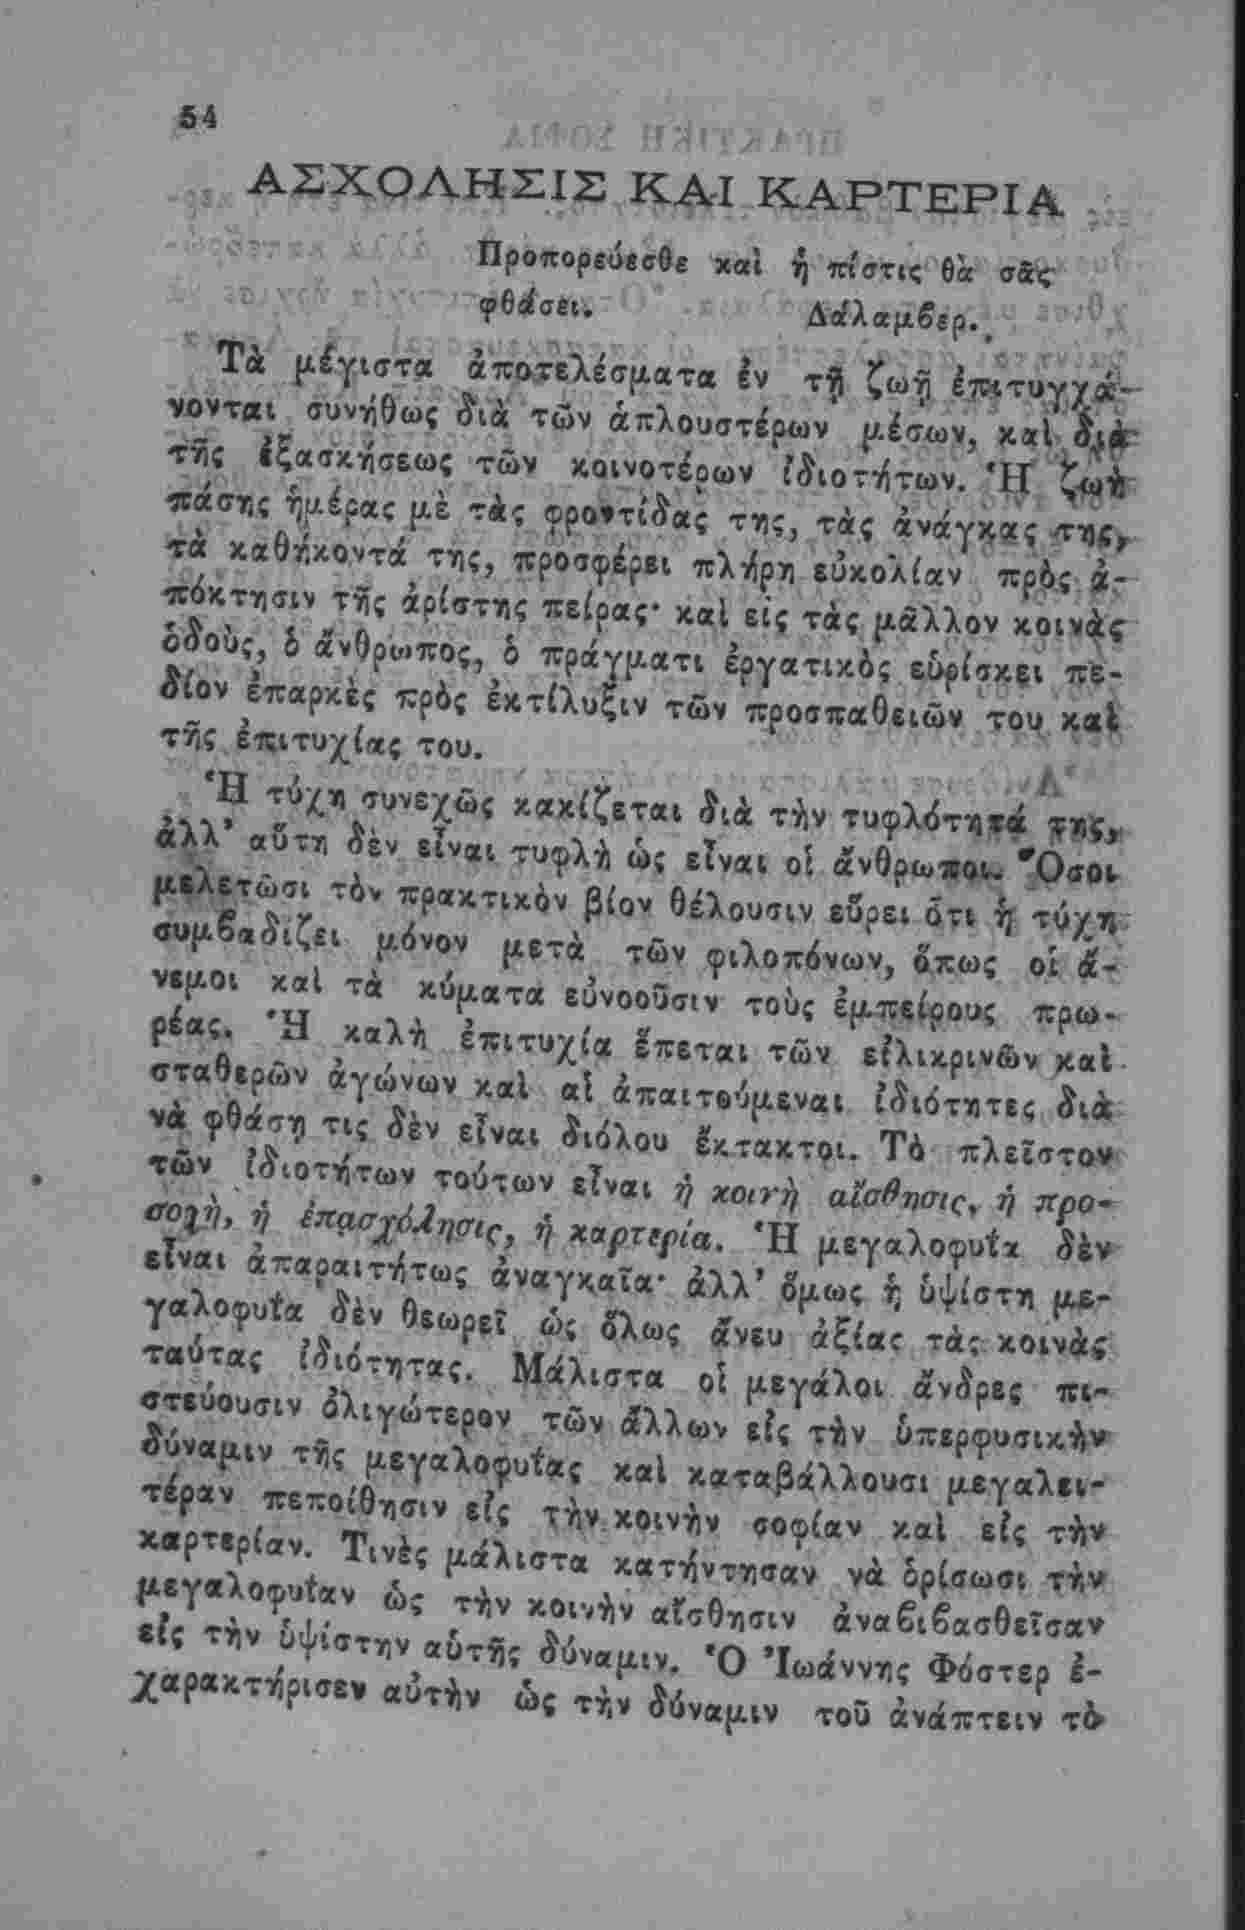 54
ΑΣΧΟΛΗΣΙΣ ΚΑΙ ΚΑΡΤΕΡΙΑ
Προπορεύεσθε καὶ ἡ πίστις θὰ σᾶς
φθάσει. Δάλαμβερ.
Τὰ μέγιστα ἀποτελέσματα ἐν τῇ ζωῇ ἐπιτυγχά-
νονται συνήθως διὰ τῶν ἁπλουστέρων μέσων, καὶ διὰ
τῆς ἐξασκήσεως τῶν κοινοτέρων ἰδιοτήτων. Ἡ ζωὴ
πάσης ἡμέρας μὲ τὰς φροντίδας της, τὰς ἀνάγκας της,
τὰ καθήκοντά της, προσφέρει πλήρη εὐκολίαν πρὸς ἀ-
πόκτησιν τῆς ἀρίστης πείρας· καὶ εἰς τὰς μᾶλλον κοινὰς
ὁδοὺς, ὁ ἄνθρωπος, ὁ πράγματι ἐργατικὸς εὑρίσκει πε-
δίον ἐπαρκὲς πρὸς ἐκτίλυξιν τῶν προσπαθειῶν του καὶ
τῆς ἐπιτυχίας του.
Ἡ τύχη συνεχῶς κακίζεται διὰ τὴν τυφλότητά της,
ἀλλ' αὕτη δὲν εἶναι τυφλὴ ὡς εἶναι οἱ ἄνθρωποι. Ὅσοι
μελετῶσι τὸν πρακτικὸν βίον θέλουσιν εὕρει ὅτι ἡ τύχη
συμβαδίζει μόνον μετὰ τῶν φιλοπόνων, ὅπως οἱ ἄ-
νεμοι καὶ τὰ κύματα εὐνοοῦσιν τοὺς ἐμπείρους πρω-
ρέας. Ἡ καλὴ ἐπιτυχία ἕπεται τῶν εἰλικρινῶν καὶ
σταθερῶν ἀγώνων καὶ αἱ ἀπαιτούμεναι ἰδιότητες διὰ
νὰ φθάσῃ τις δὲν εἶναι διόλου ἔκτακτοι. Τὸ πλεῖστον
τῶν ἰδιοτήτων τούτων εἶναι ἡ κοινὴ αἴσθησις, ἡ προ-
σοχὴ, ἡ ἐπασχόλησις, ἡ καρτερία. Ἡ μεγαλοφυΐα δὲν
εἶναι ἀπαραιτήτως ἀναγκαῖα· ἀλλ' ὅμως ἡ ὑψίστη με-
γαλοφυΐα δὲν θεωρεῖ ὡς ὅλως ἄνευ ἀξίας τὰς κοινὰς
ταύτας ἰδιότητας. Μάλιστα οἱ μεγάλοι ἄνδρες πι-
στεύουσιν ὀλιγώτερον τῶν ἄλλων εἰς τὴν ὑπερφυσικὴν
δύναμιν τῆς μεγαλοφυΐας καὶ καταβάλλουσι μεγαλει-
τέραν πεποίθησιν εἰς τὴν κοινὴν σοφίαν καὶ εἰς τὴν
καρτερίαν. Τινὲς μάλιστα κατήντησαν νὰ ὁρίσωσι τὴν
μεγαλοφυΐαν ὡς τὴν κοινὴν αἴσθησιν ἀναβιβασθεῖσαν
εἰς τὴν ὑψίστην αὑτῆς δύναμιν. Ὁ Ἰωάννης Φόστερ ἐ-
χαρακτήρισεν αὐτὴν ὡς τὴν δύναμιν τοῦ ἀνάπτειν τὸ